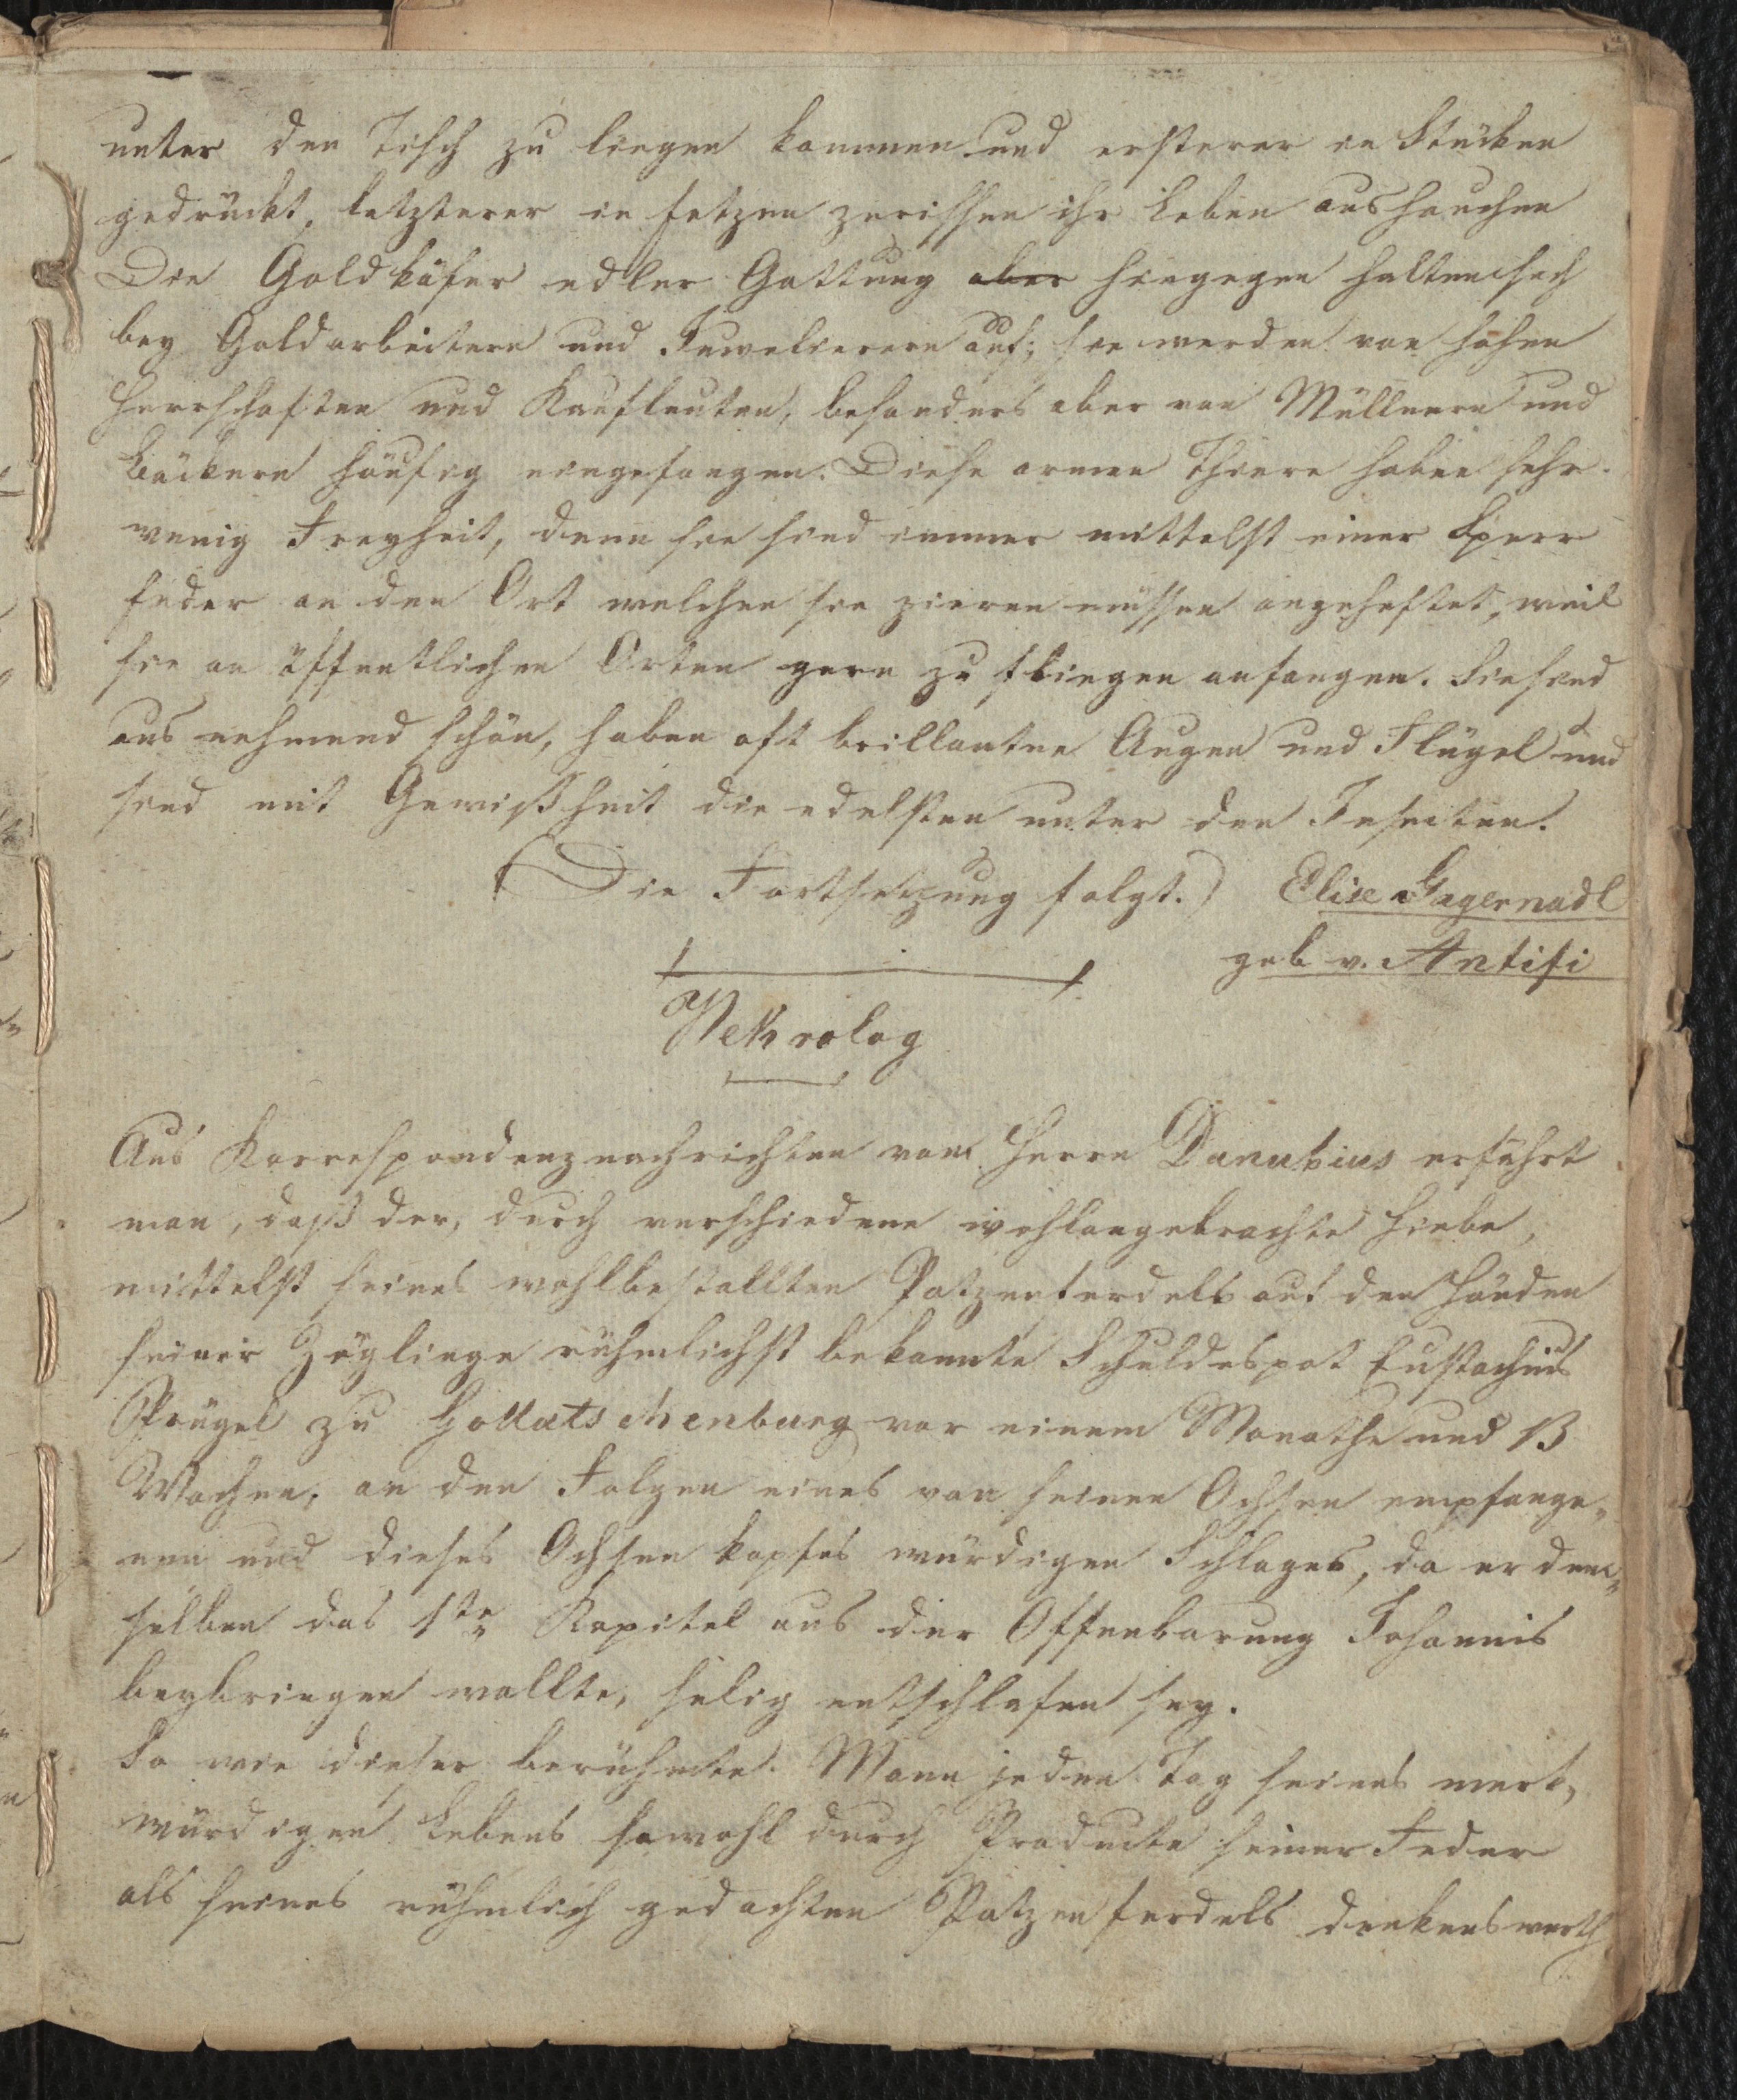 unter den Tisch zu liegen kommen und ersterer in Stücken
gedrückt, letzterer in fetzen zerissen ihr Leben aushauchen
Die Goldkäfer edler Gattung aber hingegen halten sich
bey Goldarbeitern und Juwelierern auf; sie werden von hohen
Herrschaften und Kaufleuten, besonders aber von Müllnern und
Bäckern häufig eingefangen. Diese armen Thiere haben sehr
wenig Freyheit, denn sie sind immer mittelst einer Sperr
feder an den Ort welchen sie zieren müssen angeheftet, weil
sie an öffentlichen Orten gern zu fliegen anfangen. Sie sind
aus nehmend schön, haben oft brillanten Augen und Flügel und
sind mit Gewißheit die edelsten unter den Insecten.
(Die Fortsetzung folgt.) Elise Gagernadl
geb v. Antifi
Nekrolog
Aus Korrespondenznachrichten vom Herrn Danubius erfährt
man, daß der, durch verschiedene wohlangebrachte Hiebe,
mittelst seines wohlbestallten Patzenferdels auf den Händen
seiner Zöglinge rühmlichst bekannte Schuldespot Eustachius
Prügel zu Gollatschenburg vor einem Monathe und 13
Wochen, an den Folgen eines von seinen Ochsen empfange-
nen und dieses Ochsen kopfes würdigen Schlages, da er dem-
selben das 1te Kapitel aus der Offenbarung Johannis
beybringen wollte, selig entschlafen sey.
So wie dieser berühmte Mann jeden Tag seines merk-
würdigen Lebens sowohl durch Producte seiner Feder
als seines rühmlich gedachten Patzenferdels denkenswerth